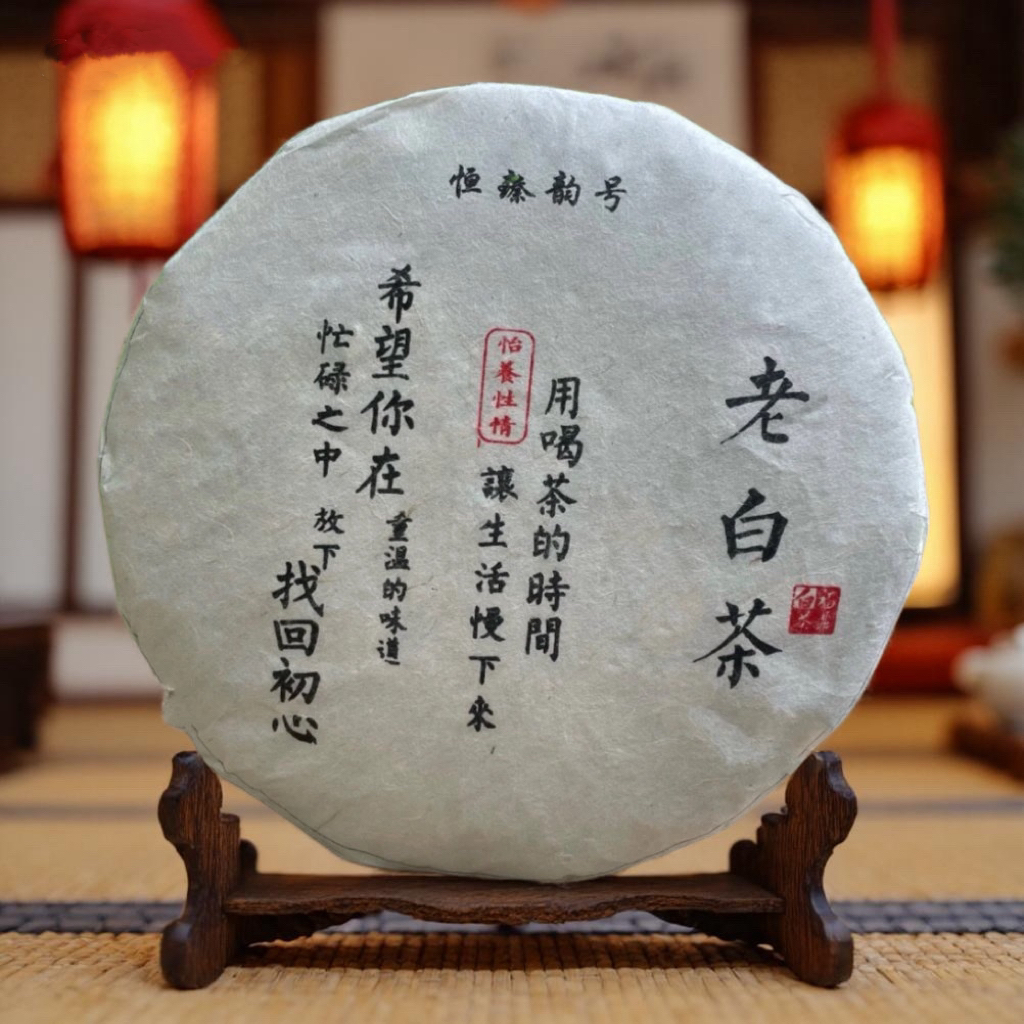 恒臻韵号
老白茶
福鼎
白茶
用喝茶的時間
怡養性情
讓生活慢下來
希望你在
重温的味道
忙碌之中
放下
找回初心